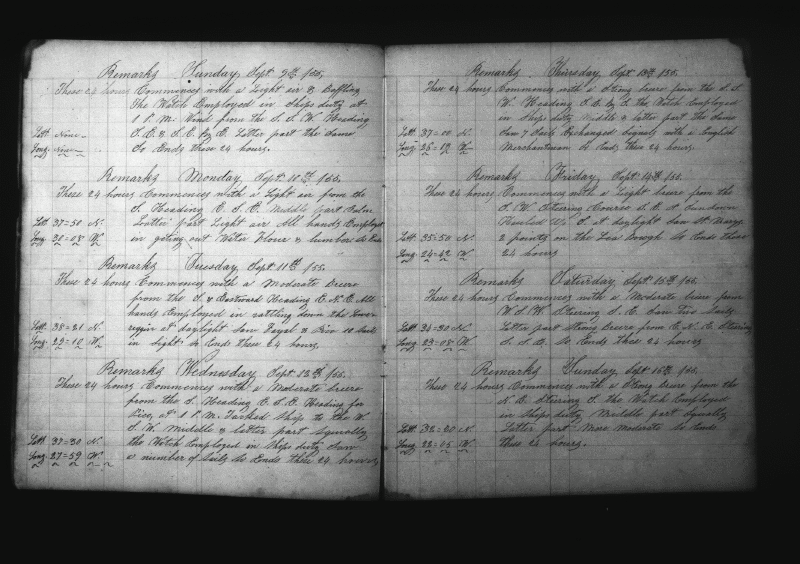 Remarks Sunday, Sept 9th /55.
These 24 hours Commences with a Light air & Baffling
The Watch Employed in Ships duty at
1 P.M. Wind from the S.S.W. Heading
S.E. & S.E. by E. Latter part the Same
Latt None
So Ends these 24 hours.
Long None
Remarks Monday, Sept 10th /55.
These 24 hours Commences with a Light air from the
S. Heading E.S.E. Middle part Calm
Latt 37=50 N. Latter part Light air All hands Employed
Long 30=08 W. in getting out Water Flour & Lumber So Ends
Remarks Tuesday, Sept 11th /55.
These 24 hours Commences with a Moderate Breeze
from the S. & Eastward Heading E.N.E. All
hands Employed in rattling down the Lower
Latt. 38=21 N. at daylight Saw Fayal & Pico 10 Sails
Long 29=10 W. in Sight So Ends these 24 hours,
Remarks Wednesday, Sept 12th /55.
These 24 hours Commences with a Moderate breeze
from the S. Heading E.S.E. Heading for
Pico, at 1 P.M. Tacked Ships to the W.
S.W. Middle & latter part Squally
Latt 37=30 N. the Watch Employed in Ships duty Saw
Long 27=59 W. a number of Sails So Ends these 24 hours,
Remarks Thursday, Sept 13th /55.
These 24 hours Commences with a Strong breeze from the S.S.
W. Heading S.E. by S. the Watch Employed
in Ships duty Middle & latter part the Same
Latt 37=00 N. Saw 7 Sails Exchanged Signals with a English
Long 26=19 W. Merchantman So Ends these 24 hours.
Remarks Friday, Sept 14th /55.
These 24 hours Commences with a Light breeze from the
S.W. Steering Course S.E. At Sundown
at daylight Saw St Marys
Latt 35=50 N. 2 points on the Lea bough So Ends these
Long 24=42 W. 24 hours
Remarks Saturday, Sept 15th /55.
These 24 hours Commences with a Moderate breeze from
W.S.W. Steering S.E. Saw two Sails
Latt 34=30 N. Latter part Strong breeze from E.N.E. Steering
Long 23=08 W. S.S.E. So Ends these 24 hours
Remarks Sunday, Sept 16th /55.
These 24 hours Commences with a Strong breeze from the
N.E. Steering S. the Watch Employed
in Ships duty, Middle part Squally
Latt 32=20 N. Latter part More Moderate So Ends
Long 22=05 W. these 24 hours.